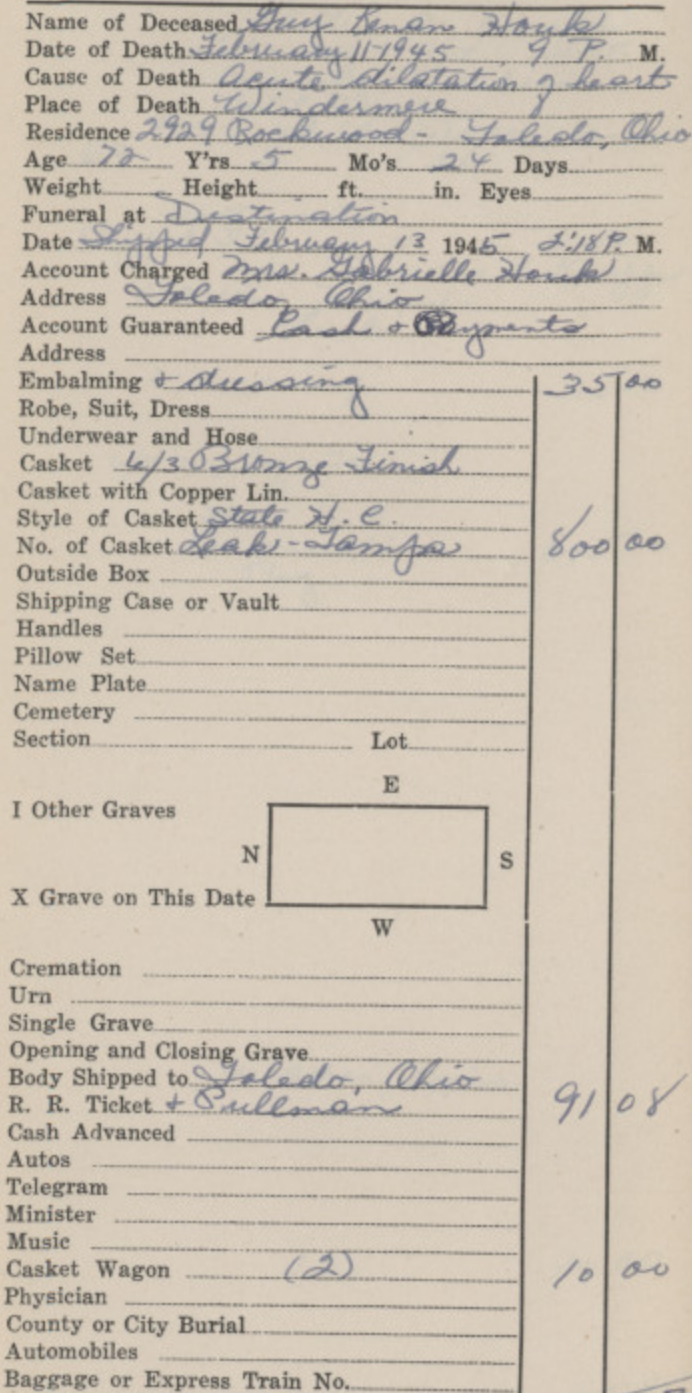 Name of Deceased Guy Kenan Houk
Date of Death February 11 1945 9 P. M.
Cause of Death Acute dilatation of heart
Place of Death Windermere
Residence 2929 Rockwood - Toledo, Ohio
Age 72 Y'rs 5 Mo's 24 Days
Weight Height ft. in. Eyes
Funeral at Destination
Date Shipped February 13 1945 2:18 P. M.
Account Charged Mrs. Gabrielle Houk
Address Toledo, Ohio
Account Guaranteed Cash + Payments
Address
Embalming + dressing 35 00
Robe, Suit, Dress
Underwear and Hose
Casket 6/3 Bronze Finish
Casket with Copper Lin.
Style of Casket State H. C.
No. of Casket Leak - Tampa 800 00
Outside Box
Shipping Case or Vault
Handles
Pillow Set
Name Plate
Cemetery
Section Lot
E
I Other Graves
N S
X Grave on This Date
W
Cremation
Urn
Single Grave
Opening and Closing Grave
Body Shipped to Toledo, Ohio
R. R. Ticket + Pullman 91 08
Cash Advanced
Autos
Telegram
Minister
Music
Casket Wagon (2) 10 00
Physician
County or City Burial
Automobiles
Baggage or Express Train No.